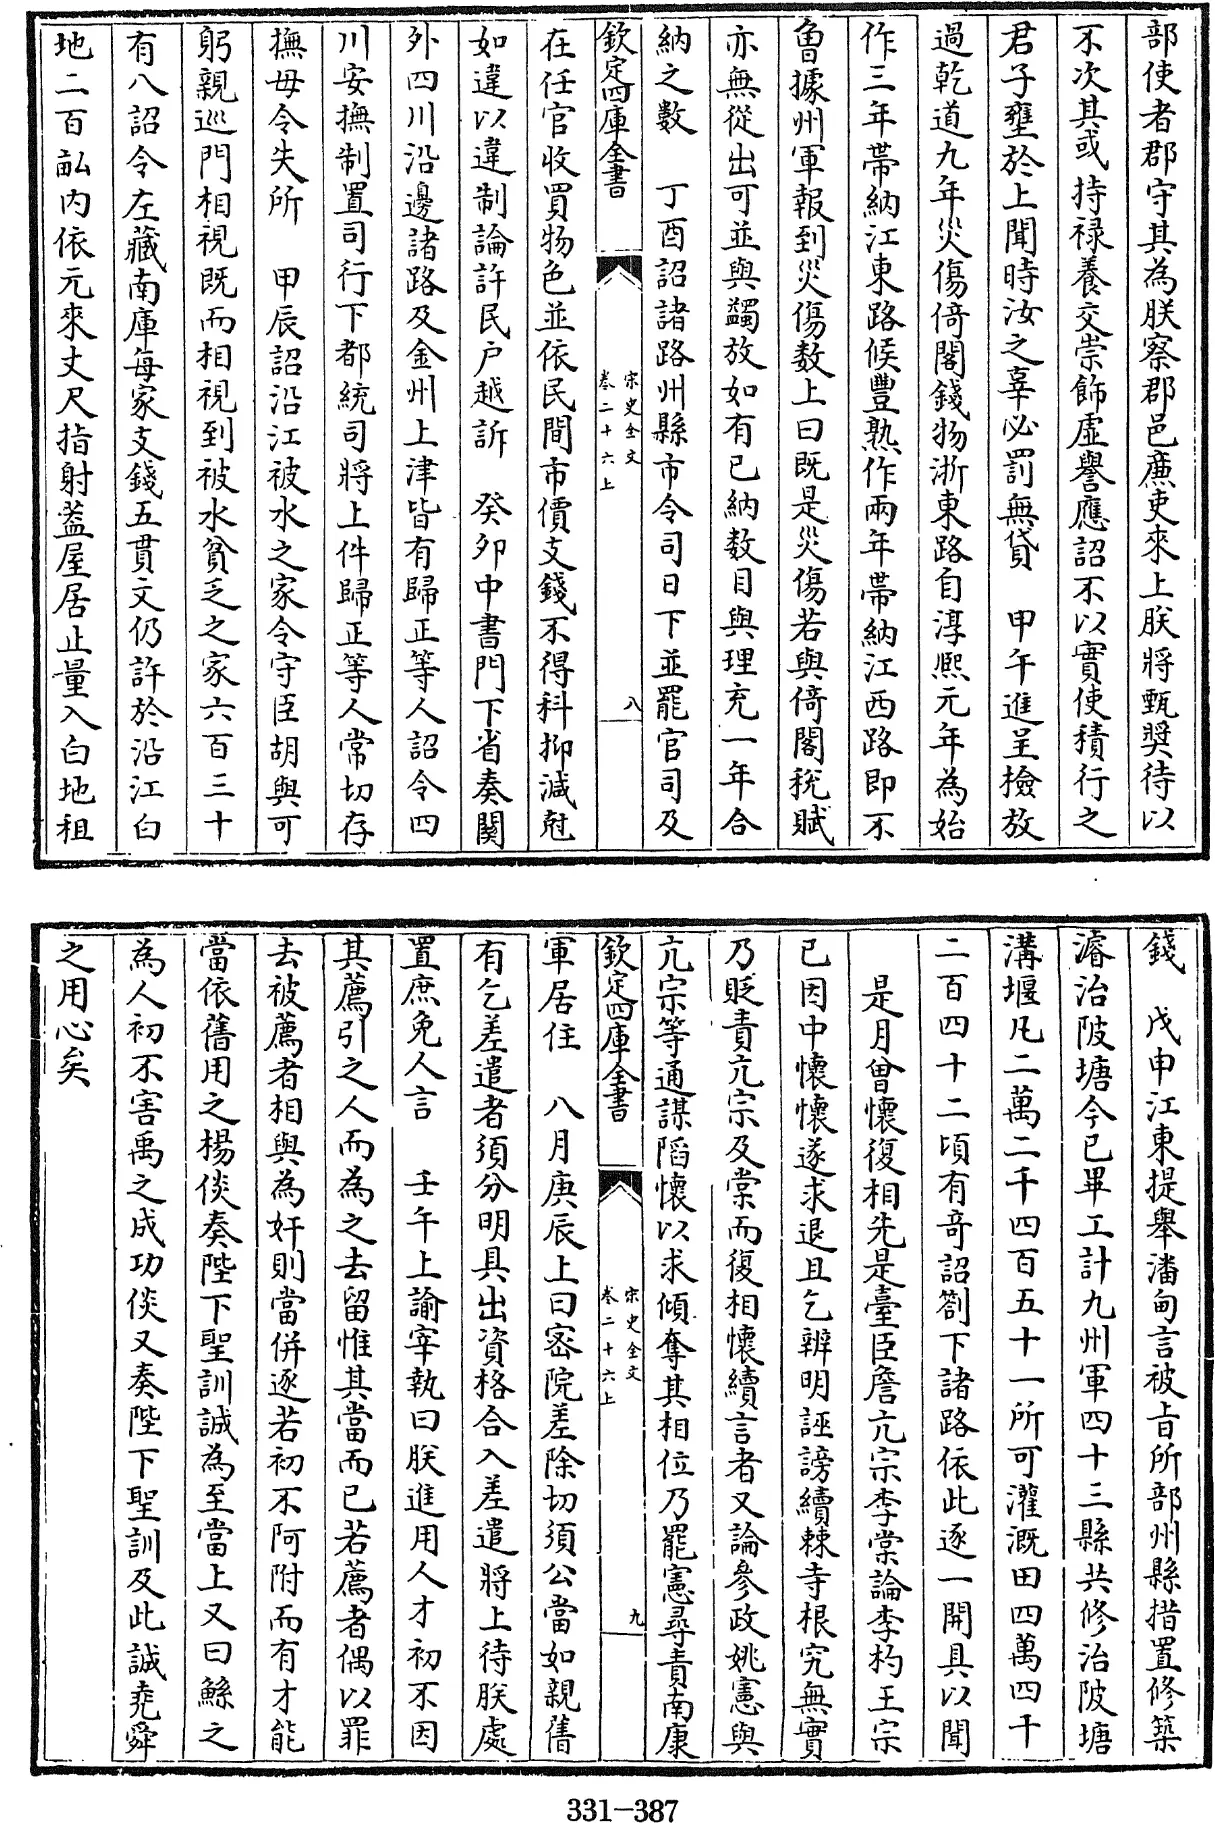 部使者郡守其為朕察郡邑廉吏來上朕將甄奨待以
不次其或持禄養交崇飾虛譽應詔不以實使積行之
君子壅於上聞時汝之辜必罰無貸　甲午進呈檢放
過乾道九年災傷倚閣錢物浙東路自淳熙元年為始
作三年帶納江東路候豐熟作兩年帶納江西路即不
魯據州軍報到災傷数上曰既是災傷若與倚閣稅賦
亦無從出可並與蠲放如有已納数目與理充一年合
納之數　丁酉詔諸路州縣市令司日下並罷官司及
欽定四庫全書
宋史全文
卷二十六上
八
在任官收買物色並依民間市價支錢不得科抑減尅
如違以違制論許民户越訴　癸夘中書門下省奏關
外四川沿邊諸路及金州上津皆有歸正等人詔令四
川安撫制置司行下都統司將上件歸正等人常切存
撫毋令失所　甲辰詔沿江被水之家令守臣胡與可
躬親巡門相視既而相視到被水貧乏之家六百三十
有八詔令左藏南庫每家支錢五貫文仍許於沿江白
地二百畝内依元來丈尺指射葢屋居止量入白地租
錢　戊申江東提舉潘甸言被㫖所部州縣措置修築
濬治陂塘今已畢工計九州軍四十三縣共修治陂塘
溝堰凡二萬二千四百五十一所可灌溉田四萬四千
二百四十二頃有奇詔劄下諸路依此逐一開具以聞
是月曾懷復相先是臺臣詹亢宗李棠論李杓王宗
已因中懷懷遂求退且乞辨明誣謗續棘寺根究無實
乃貶責亢宗及棠而復相懷續言者又論參政姚憲與
亢宗等通謀䧟懷以求傾奪其相位乃罷憲尋責南康
欽定四庫全書
宋史全文
卷二十六上
九
軍居住　八月庚辰上曰宻院差除切須公當如親舊
有乞差遣者須分明具出資格合入差遣將上待朕處
置庶免人言　壬午上諭宰執曰朕進用人才初不因
其薦引之人而為之去留惟其當而已若薦者偶以罪
去被薦者相與為奸則當併逐若初不阿附而有才能
當依舊用之楊倓奏陛下聖訓誠為至當上又曰鯀之
為人初不害禹之成功倓又奏陛下聖訓及此誠堯舜
之用心矣
331-387